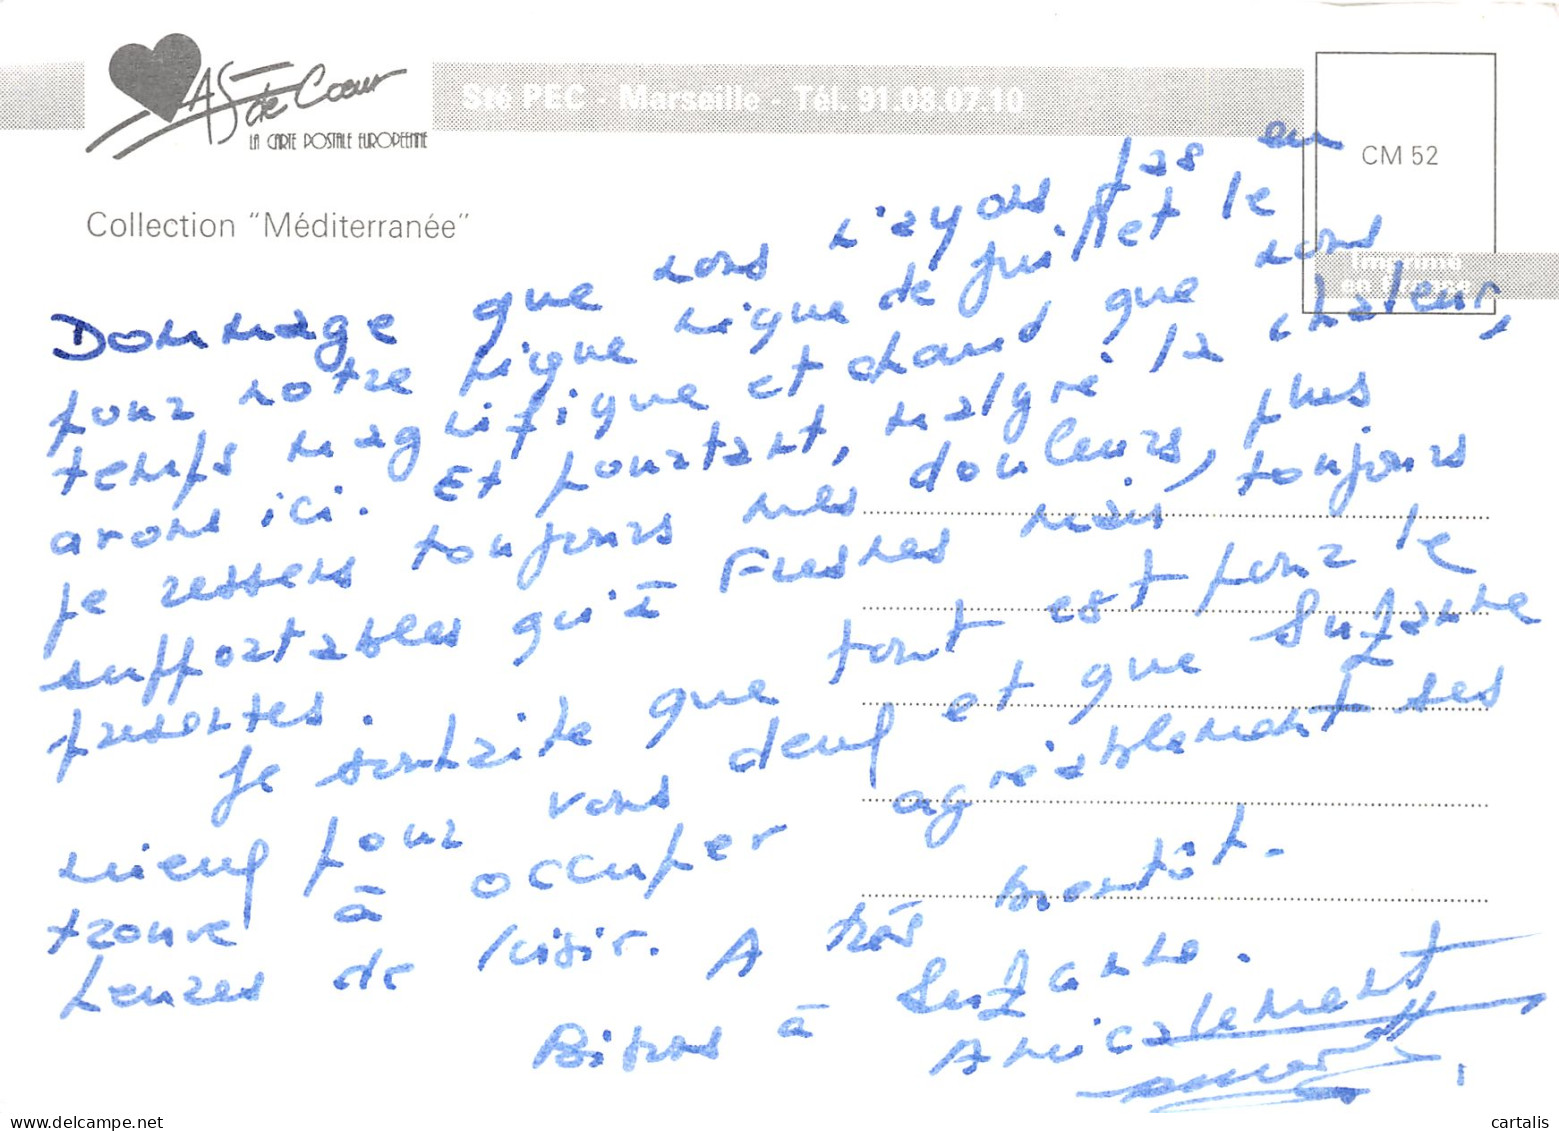 AS de Coeur
LA CARTE POSTALE EUROPEENNE
Sté PEC - Marseille - Tél. 91.08.07.10
CM 52
Collection "Méditerranée"
Imprimé
en France
Dommage que nous n'ayons pas eu
pour notre pique nique de juillet le
temps magnifique et chaud que nous
avons ici. Et pourtant, malgré la chaleur,
je ressens toujours mes douleurs, plus
supportables qu'à Fresnes mais, toujours
présentes.
Je souhaite que tout est pour le
mieux pour vous deux et que Suzanne
trouve à occuper agréablement ses
heures de loisir. A très bientôt.
Bises à Suzanne.
Amicalement
cartalis